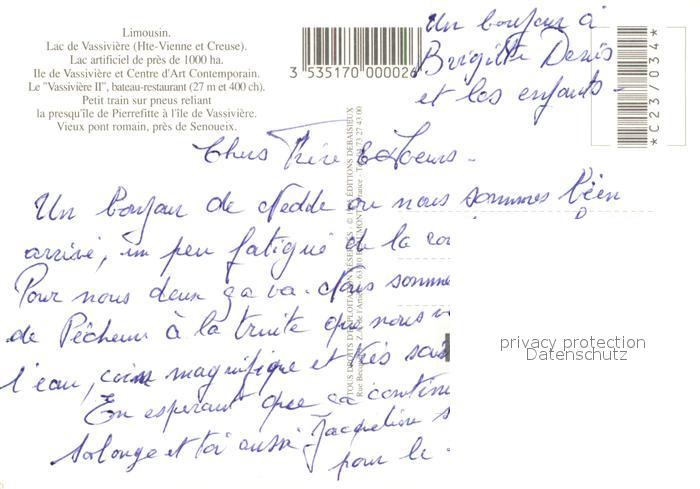 Limousin.
Lac de Vassivière (Hte-Vienne et Creuse).
Lac artificiel de près de 1000 ha.
Ile de Vassivière et Centre d'Art Contemporain.
Le "Vassivière II", bateau-restaurant (27 m et 400 ch).
Petit train sur pneus reliant
la presqu'île de Pierrefitte à l'île de Vassivière.
Vieux pont romain, près de Senoueix.
3 535170 000026
Un bonjour à
Brigitte Denis
et les enfants -
*C23/034*
Chers Frère et Soeurs -
Un bonjour de Nedde ou nous sommes bien
arrivé, un peu fatigué de la
Pour nous deux ça va. Nous somme
de Pêcheur à la truite que nous
l'eau, coin magnifique et très
En esperant que ça contin
Solange et toi aussi Jacqueline s
pour le
TOUS DROITS D'EXPLOITATION RÉSERVÉS - © ÉDITIONS DEBAISIEUX
73 27 43 00
privacy protection
Datenschutz